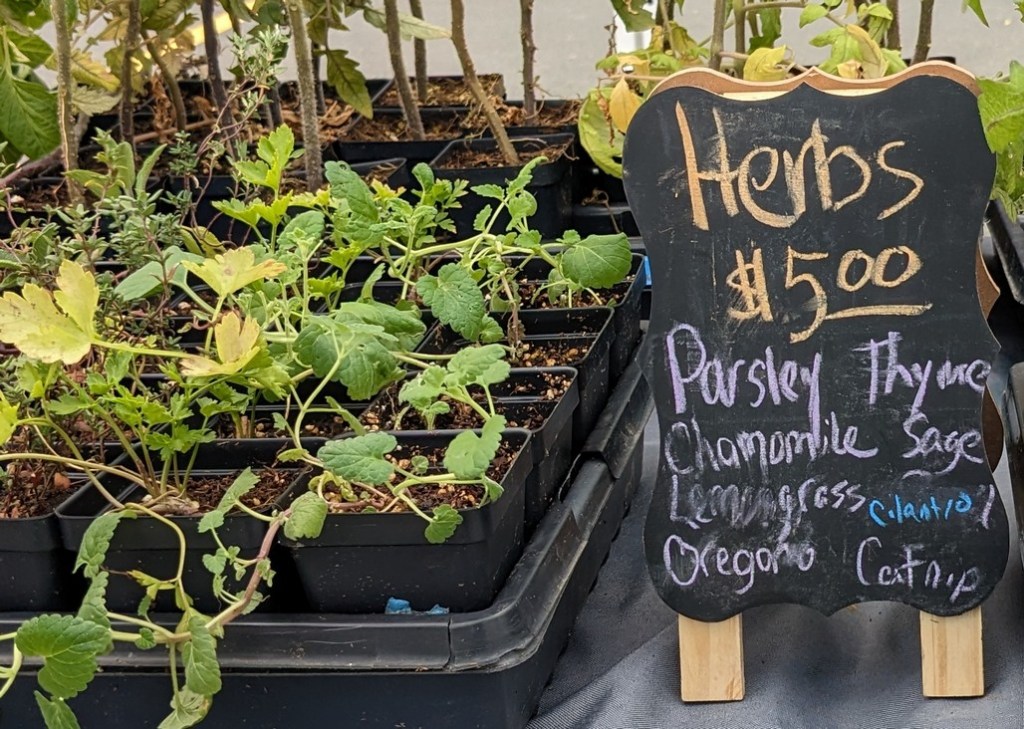 Herbs
$5.00
Parsley Thyme
Chamomile Sage
Lemongrass Cilantro
Oregano Catnip